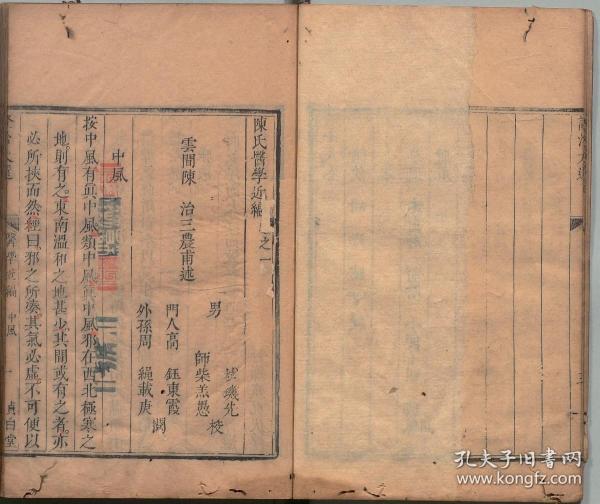 陳氏醫學近編 之一
雲間陳 治三農甫述
男
師柴羔愚 校
門人高 鈺東霞
外孫周 繩載庚 閱
中風
按中風有真中風類中風真中風邪在西北極寒之
地則有之東南溫和之地甚少其間或有之者亦
必所挾而然經曰邪之所湊其氣必虛不可便以
中風
貞白堂
孔夫子旧书网
www.kongfz.com